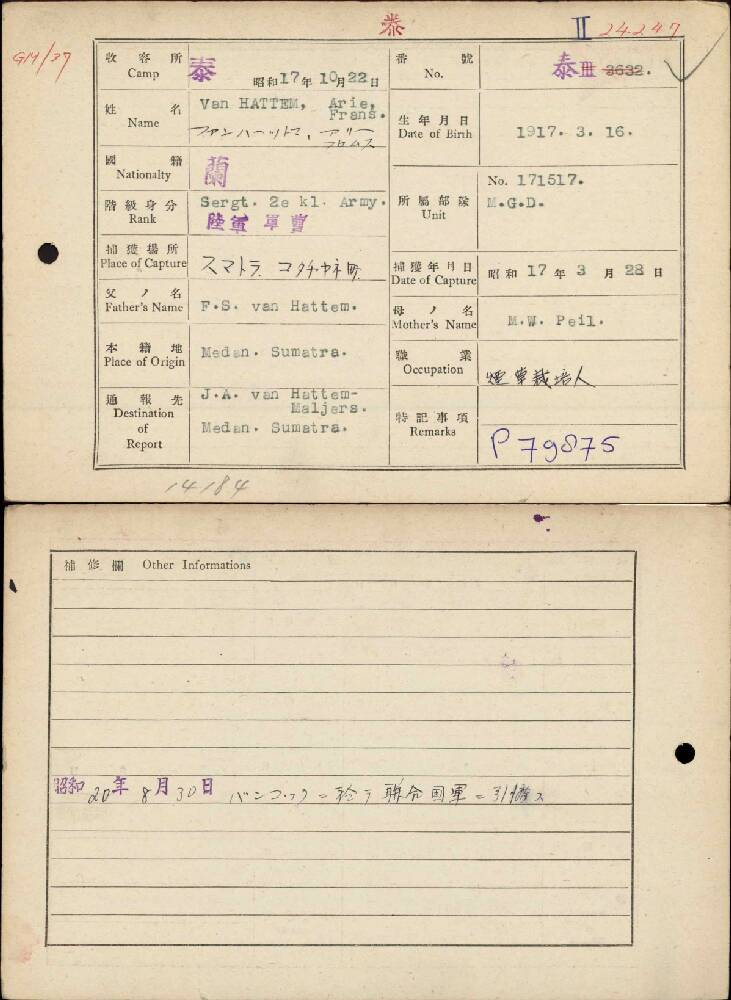 泰
II 24247
GM/37
收容所 Camp 泰 昭和17年10月22日
番號 No. 泰III 3632.
姓名 Name Van HATTEM, Arie, Frans.
ファンハーッテム, アリー
フランス
生年月日 Date of Birth 1917. 3. 16.
國籍 Nationalty 蘭
階級身分 Rank Sergt. 2e kl. Army.
陸軍軍曹
所屬部隊 Unit No. 171517.
M.G.D.
捕獲場所 Place of Capture スマトラ. コタチャネ
捕獲年月日 Date of Capture 昭和 17 年 3 月 28 日
父ノ名 Father's Name F.S. van Hattem.
母ノ名 Mother's Name M.W. Peil.
本籍地 Place of Origin Medan. Sumatra.
職業 Occupation 煙草栽培人
通報先 Destination of Report J.A. van Hattem-
Maljers.
Medan. Sumatra.
特記事項 Remarks P 79875
14184
補修欄 Other Informations
昭和20年8月30日 バンコックニ於テ聯合国軍ニ引渡ス